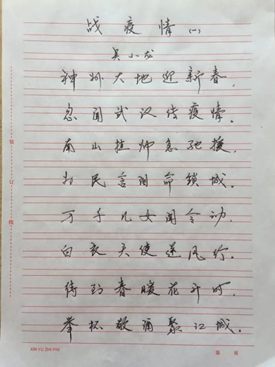 战疫情（一）
吴小龙
神州大地迎新春，
忽闻武汉传疫情。
南山挂帅急驰援，
为民言用命锁城。
万千儿女闻令动，
白衣天使逆风行。
待到春暖花开时，
举杯敬酒聚江城。